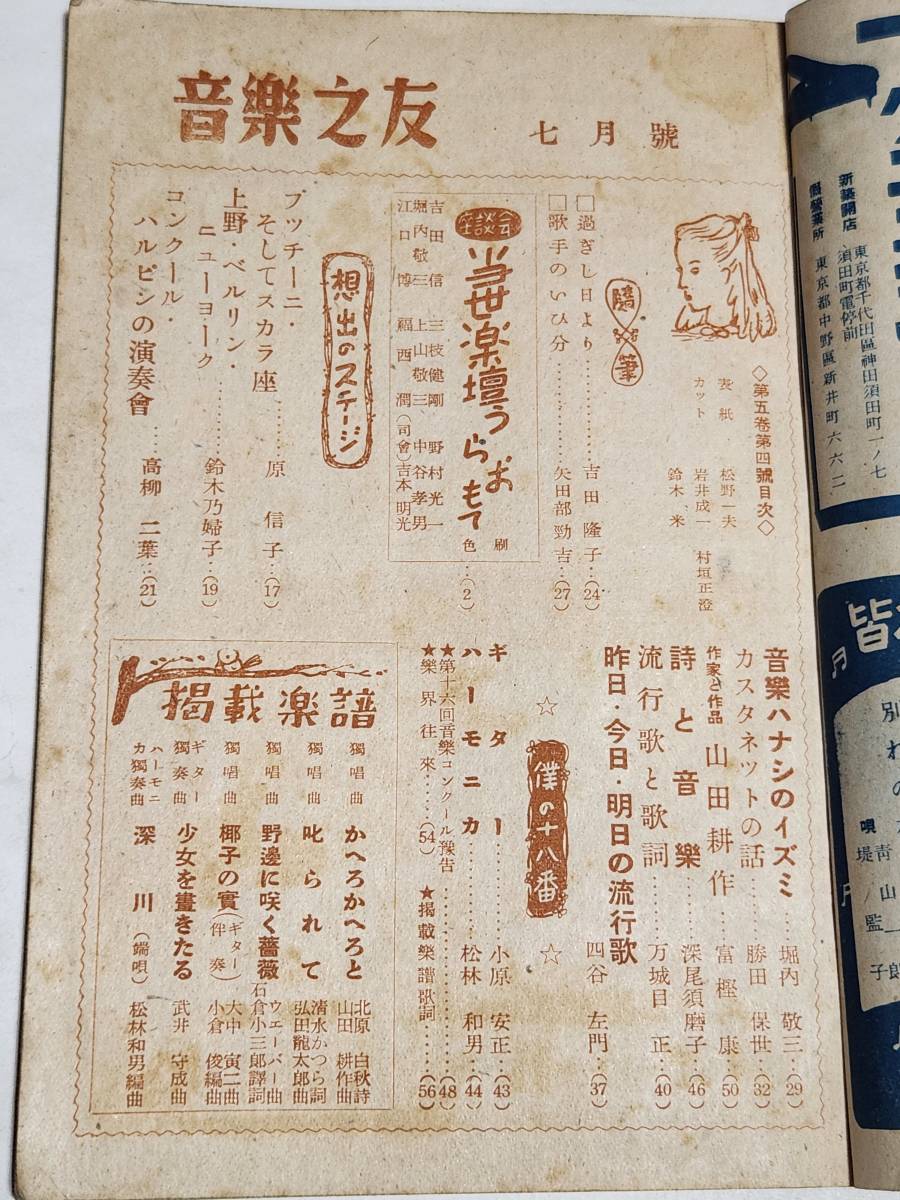 音樂之友 七月號
◇第五卷第四號目次◇
表紙 松野一夫
カット 岩井成一 村垣正澄
鈴木米
隨筆
□過ぎし日より……吉田隆子…(24)
□歌手のいひ分……矢田部勁吉…(27)
座談会
当世楽壇うらおもて 色刷…(2)
吉田信 三枝健剛 野村光一
堀内敬三 上山敬三 中谷孝男
江口博 福西潤(司會)吉本明光
想出のステージ
プッチーニ・
そしてスカラ座……原信子…(17)
上野・ベルリン・
ニューヨーク……鈴木乃婦子…(19)
コンクール・
ハルピンの演奏會……高柳二葉…(21)
音樂ハナシのイズミ……堀内敬三…(29)
カスタネットの話……勝田保世…(32)
作家と作品 山田耕作……富樫康…(50)
詩と音樂……深尾須磨子…(46)
流行歌と歌詞……万城目正…(40)
昨日・今日・明日の流行歌 四谷左門…(37)
☆ 僕の十八番 ☆
ギター……小原安正…(43)
ハーモニカ……松林和男…(44)
★第十六回音樂コンクール豫告……(48)
★樂界往來……(54) ★揭載樂譜歌詞……(56)
揭載楽譜
獨唱曲 かへろかへろと 北原白秋詩 山田耕作曲
獨唱曲 叱られて 清水かつら詞 弘田龍太郎曲
獨唱曲 野邊に咲く薔薇 ウエーバー曲 石倉小三郎譯詞
獨唱曲 椰子の實(ギター伴奏) 大中寅二曲 小倉俊編曲
ギター獨奏曲 少女を畫きたる 武井守成曲
ハーモニカ獨奏曲 深川(端唄) 松林和男編曲
新築開店 東京都千代田區神田須田町一ノ七
須田町電停前
假營業所 東京都中野區新井町六六二
皆
別れの
唄
青山
堤 監
子